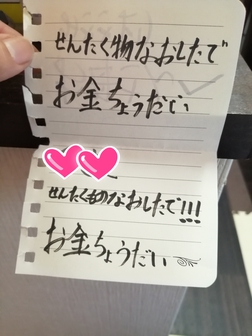 せんたく物なおしたで
お金ちょうだい
せんたくものなおしたで!!!
お金ちょうだい